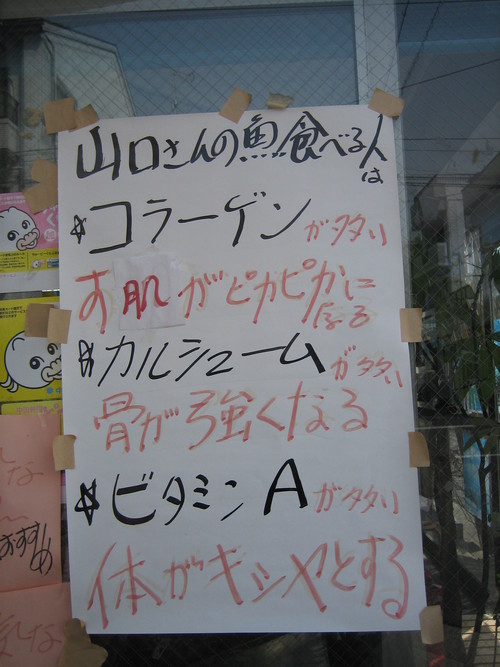 山口さんの魚食べる人
は
☆コラーゲンが多い
お肌がピカピカに
なる
☆カルシュームが多い
骨が強くなる
☆ビタミンAが多い
体がキシヤとする
おすすめ